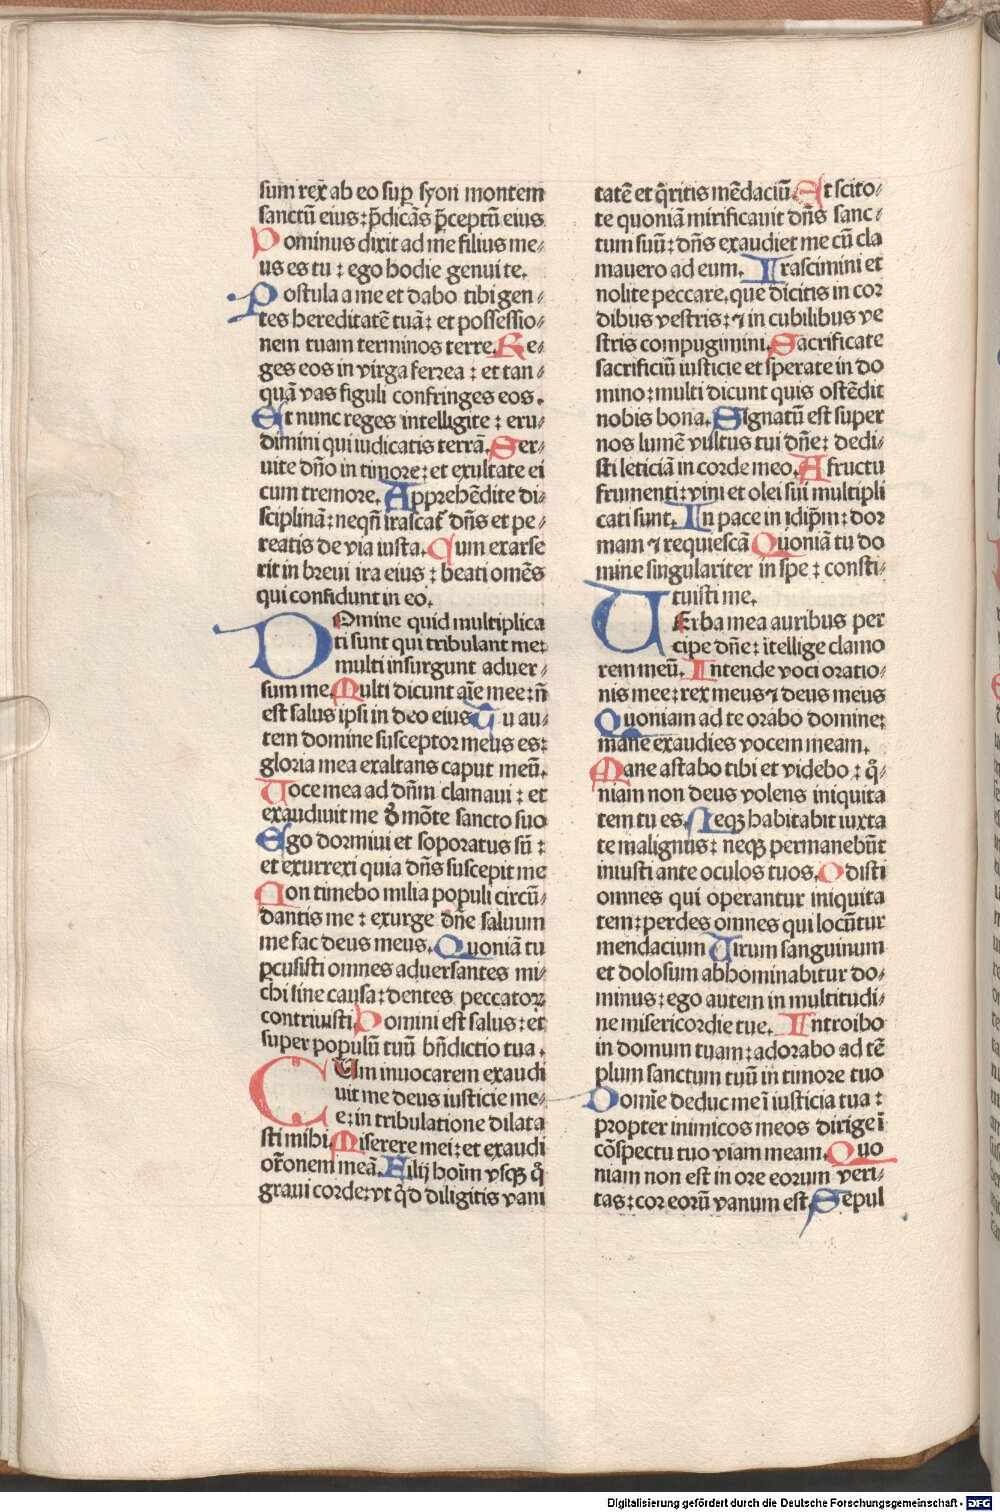 sum rex ab eo sup̱ syon montem
sanctū eius : p̄dicās p̄ceptū eius
Dominus dixit ad me filius me⸗
us es tu : ego hodie genui te.
Postula a me et dabo tibi gen⸗
tes hereditatē tuā : et possessio⸗
nem tuam terminos terre. Re⸗
ges eos in virga ferrea : et tan⸗
quā vas figuli confringes eos.
Et nunc reges intelligite : eru⸗
dimini qui iudicatis terrā. Ser⸗
uite dn̄o in timore : et exultate ei
cum tremore. Apprehēdite di⸗
sciplinā : neqn̄ irascat᷑ dn̄s et pe⸗
reatis de via iusta. Cum exarse
rit in breui ira eius : beati omēs
qui confidunt in eo.
DOmine quid multiplica
ti sunt qui tribulant me :
multi insurgunt aduer⸗
sum me. Multi dicunt aīe mee : n̄
est salus ipsi in deo eius Tu au⸗
tem domine susceptor meus es :
gloria mea exaltans caput meū.
Uoce mea ad dn̄m clamaui : et
exaudiuit me d̄ mōte sancto suo
Ego dormiui et soporatus sū :
et exurrexi quia dn̄s suscepit me
Non timebo milia populi circū⸗
dantis me : exurge dn̄e saluum
me fac deus meus. Quoniā tu
ꝑcusisti omnes aduersantes mi⸗
chi sine causa : dentes peccatoꝝ
contriuisti. Domini est salus : et
super populū tuū bn̄dictio tua.
CUm inuocarem exaudi
uit me deus iusticie me⸗
e : in tribulatione dilata
sti mihi. Miserere mei : et exaudi
or̄onem meā. Filij hoīm vsqꝫ q̄
graui corde : vt qͥd diligitis vani
tatē et q̄ritis mēdaciū Et scito⸗
te quoniā mirificauit dn̄s sanc⸗
tum suū : dn̄s exaudiet me cū cla
mauero ad eum. Irascimini et
nolite peccare, que dicitis in cor
dibus vestris : ⁊ in cubilibus ve
stris compugimini. Sacrificate
sacrificiū iusticie et sperate in do
mino : multi dicunt quis ostēdit
nobis bona. Signatū est super
nos lumē vultus tui dn̄e : dedi⸗
sti leticiā in corde meo. A fructu
frumenti : vini et olei sui multipli
cati sunt. In pace in idip̄m : dor
mam ⁊ requiescā Quoniā tu do
mine singulariter in spe : consti⸗
tuisti me.
UErba mea auribus per
cipe dn̄e : ītellige clamo
rem meū. Intende voci oratio⸗
nis mee : rex meus ⁊ deus meus
Quoniam ad te orabo domine :
mane exaudies vocem meam.
Mane astabo tibi et videbo : q̄⸗
niam non deus volens iniquita
tem tu es. Neqꝫ habitabit iuxta
te malignus : neqꝫ permanebūt
iniusti ante oculos tuos. Odisti
omnes qui operantur iniquita
tem : perdes omnes qui locūtur
mendacium Uirum sanguinum
et dolosum abhominabitur do⸗
minus : ego autem in multitudi⸗
ne misericordie tue. Introibo
in domum tuam : adorabo ad tē
plum sanctum tuū in timore tuo
Domīe deduc me ī iusticia tua :
propter inimicos meos dirige ī
cōspectu tuo viam meam. Quo
niam non est in ore eorum veri⸗
tas : cor eorū vanum est. Sepul
Digitalisierung gefördert durch die Deutsche Forschungsgemeinschaft - DFG